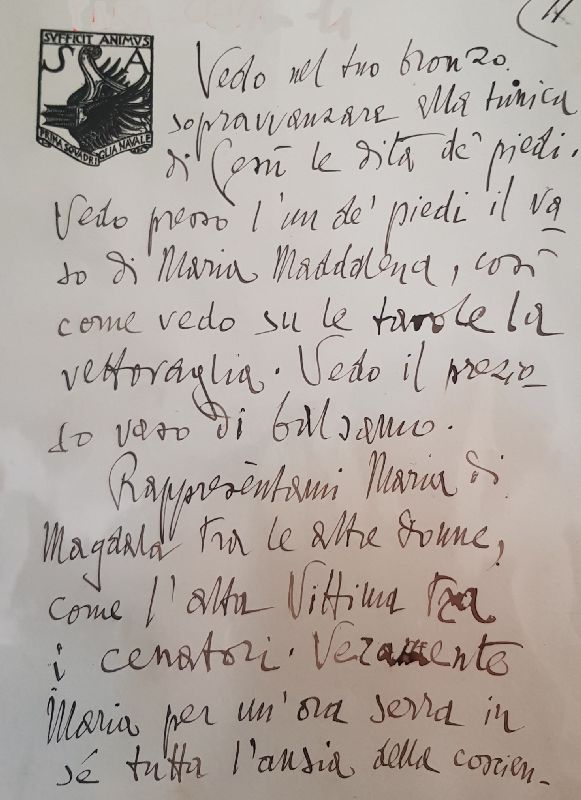 11
SVFFICIT ANIMVS
S A
PRIMA SQVADRIGLIA NAVALE
Vedo nel tuo bronzo
sopravvanzare alla tunica
di Gesù le dita de' piedi.
Vedo presso l'un de' piedi il va
so di Maria Maddalena, così
come vedo su le tavole la
vettovaglia. Vedo il prezio_
so vaso di balsamo.
Rappresèntami Maria di
Magdala tra le altre donne,
come l'alta Vittima tra
i cenatori. Veramente
Maria per un'ora serra in
sé tutta l'ansia della coscien_